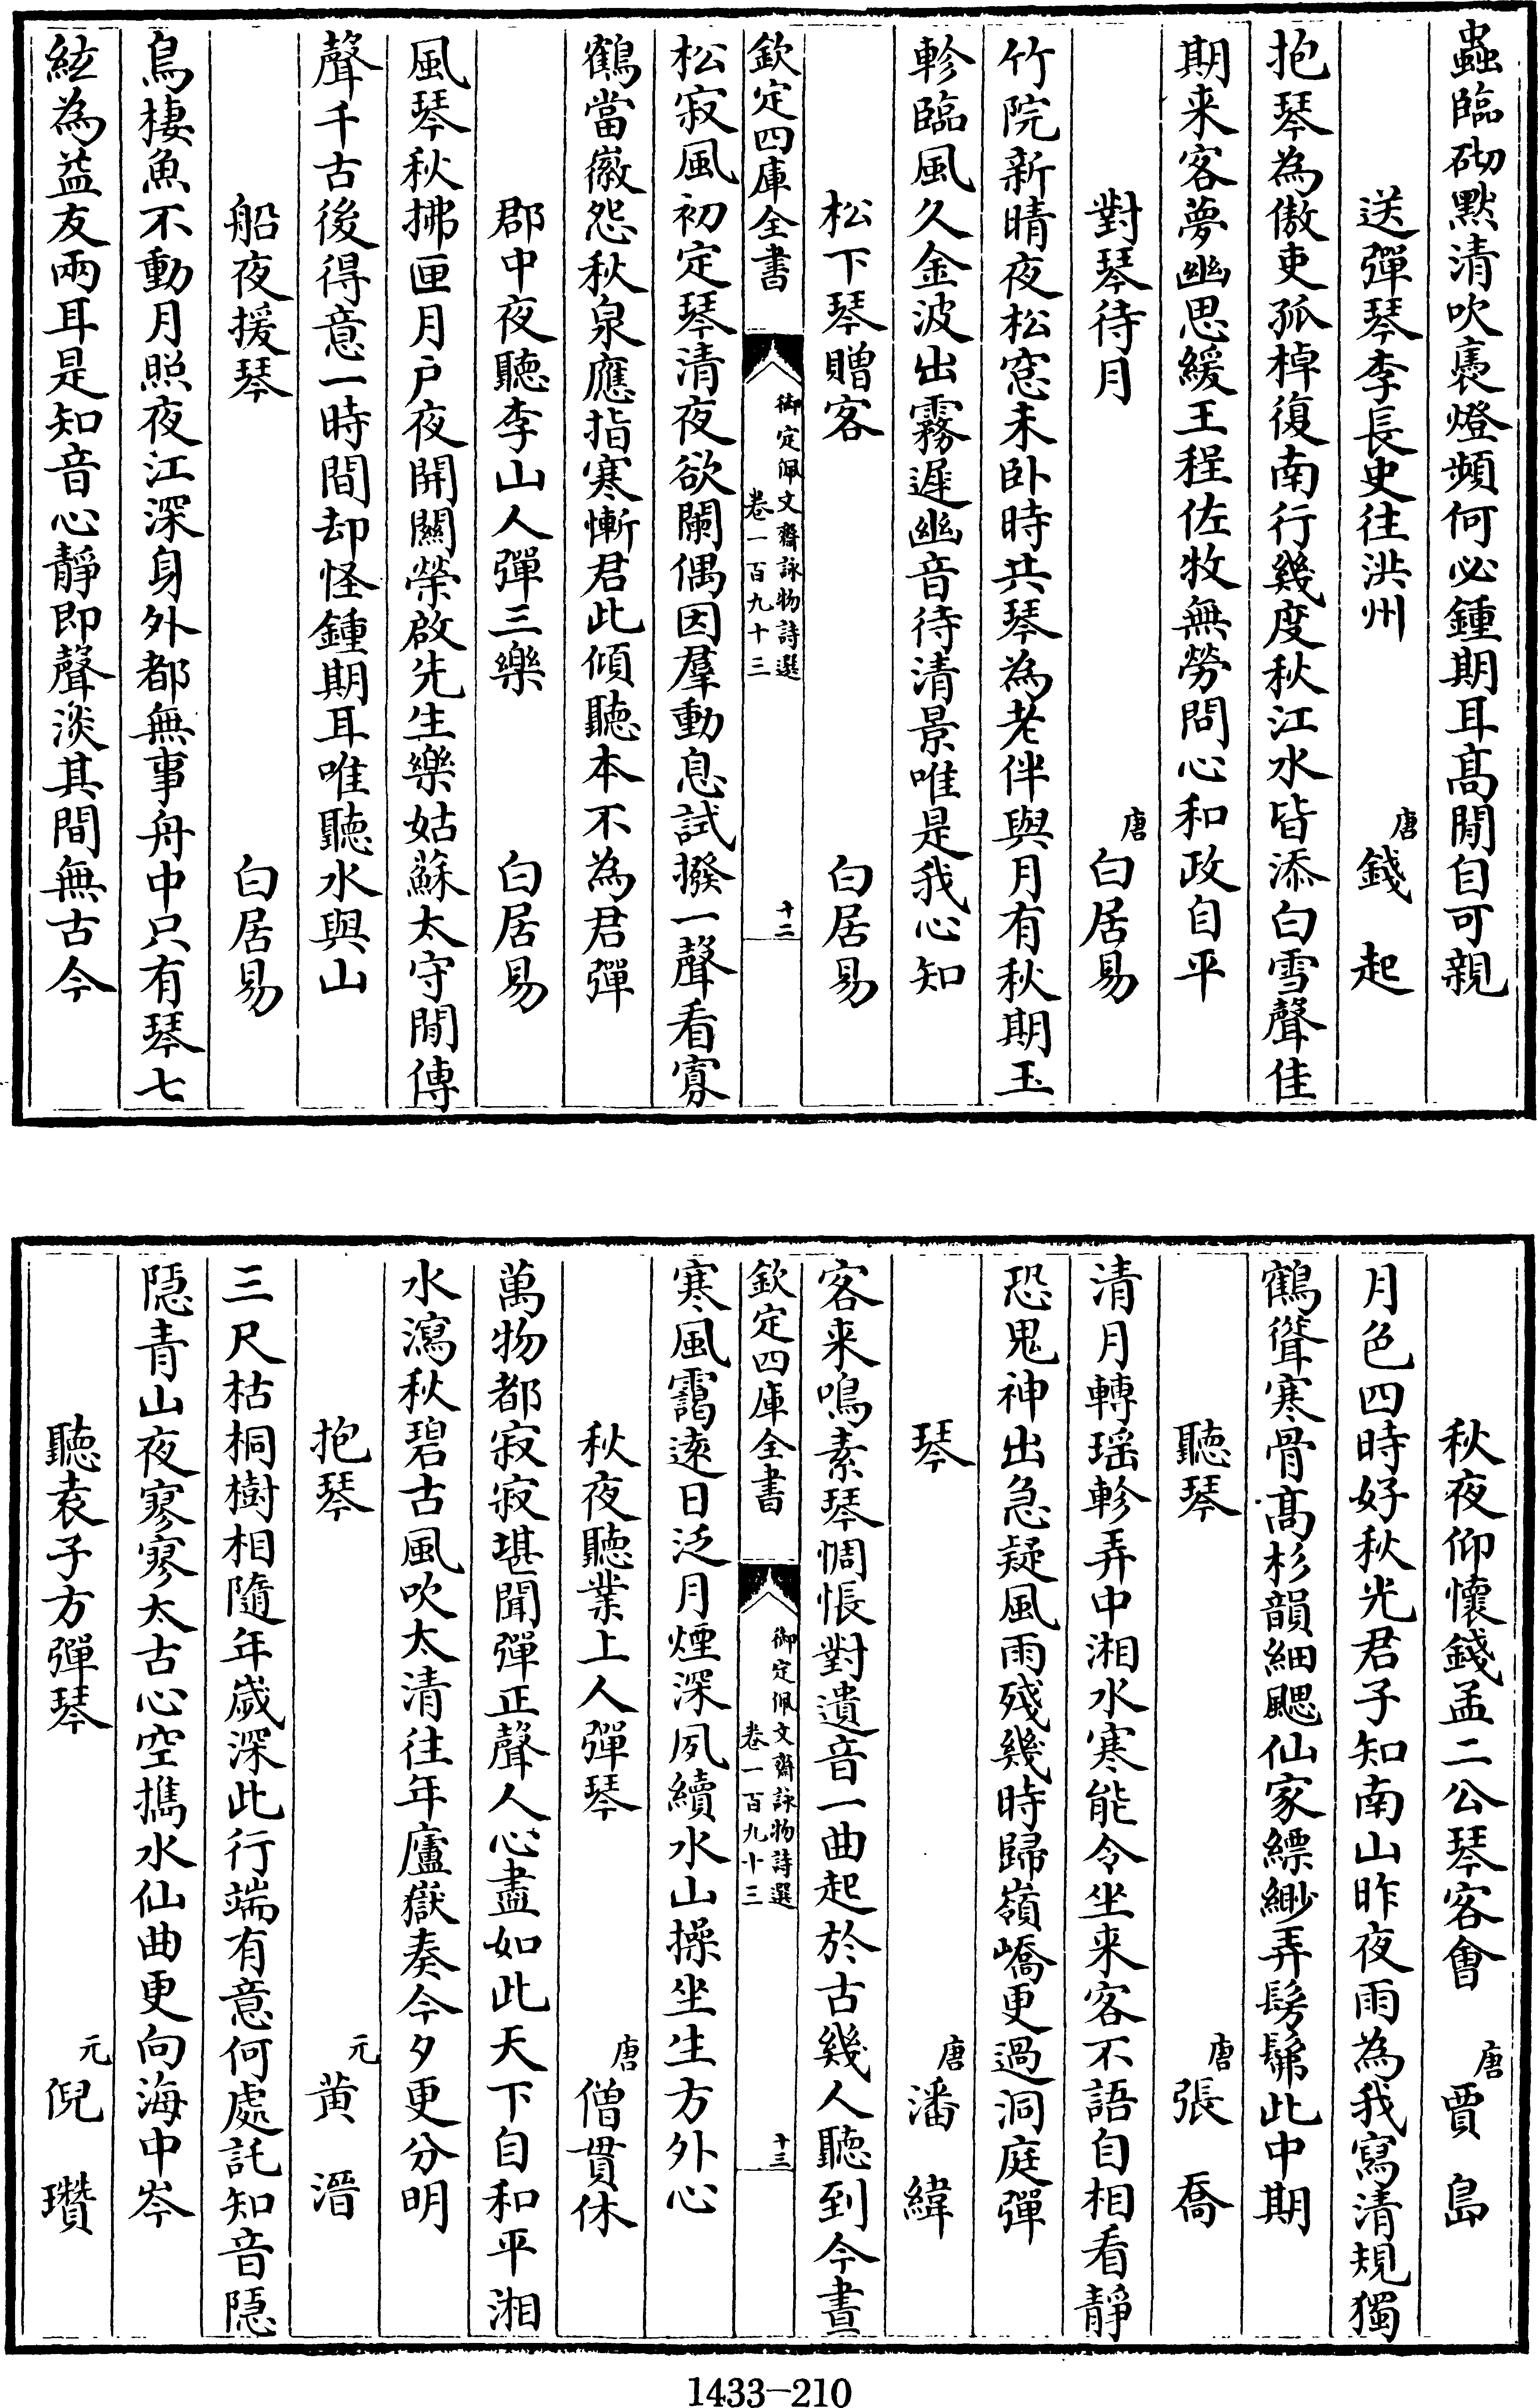 蟲臨砌默清吹裛燈頻何必鍾期耳高閒自可親
送彈琴李長史往洪州 唐錢起
抱琴為傲吏孤棹復南行幾度秋江水皆添白雪聲佳
期来客夢幽思緩王程佐牧無勞問心和政自平
對琴待月 唐白居易
竹院新晴夜松窓未卧時共琴為老伴與月有秋期玉
軫臨風久金波出霧遲幽音待清景唯是我心知
松下琴贈客 白居易
欽定四庫全書 御定佩文齋詠物詩選 卷一百九十三 十二
松寂風初定琴清夜欲闌偶因羣動息試撥一聲看寡
鶴當徽怨秋泉應指寒慚君此傾聽本不為君彈
郡中夜聽李山人彈三樂 白居易
風琴秋拂匣月戶夜開關榮啟先生樂姑蘇太守閒傳
聲千古後得意一時間却怪鍾期耳唯聽水與山
船夜援琴 白居易
鳥棲魚不動月照夜江深身外都無事舟中只有琴七
絃為益友兩耳是知音心靜即聲淡其間無古今
秋夜仰懷錢孟二公琴客會 唐賈島
月色四時好秋光君子知南山昨夜雨為我寫清規獨
鶴聳寒骨高杉韻細颸仙家縹緲弄髣髴此中期
聽琴 唐張喬
清月轉瑶軫弄中湘水寒能令坐来客不語自相看靜
恐鬼神出急疑風雨殘幾時歸嶺嶠更過洞庭彈
琴 唐潘緯
客来鳴素琴惆悵對遺音一曲起於古幾人聽到今晝
欽定四庫全書 御定佩文齋詠物詩選 卷一百九十三 十三
寒風靄遠日泛月煙深夙續水山操坐生方外心
秋夜聽業上人彈琴 唐僧貫休
萬物都寂寂堪聞彈正聲人心盡如此天下自和平湘
水瀉秋碧古風吹太清往年廬嶽奏今夕更分明
抱琴 元黃溍
三尺枯桐樹相隨年歲深此行端有意何處託知音隱
隱青山夜寥寥太古心空攜水仙曲更向海中岑
聽袁子方彈琴 元倪瓚
1433-210